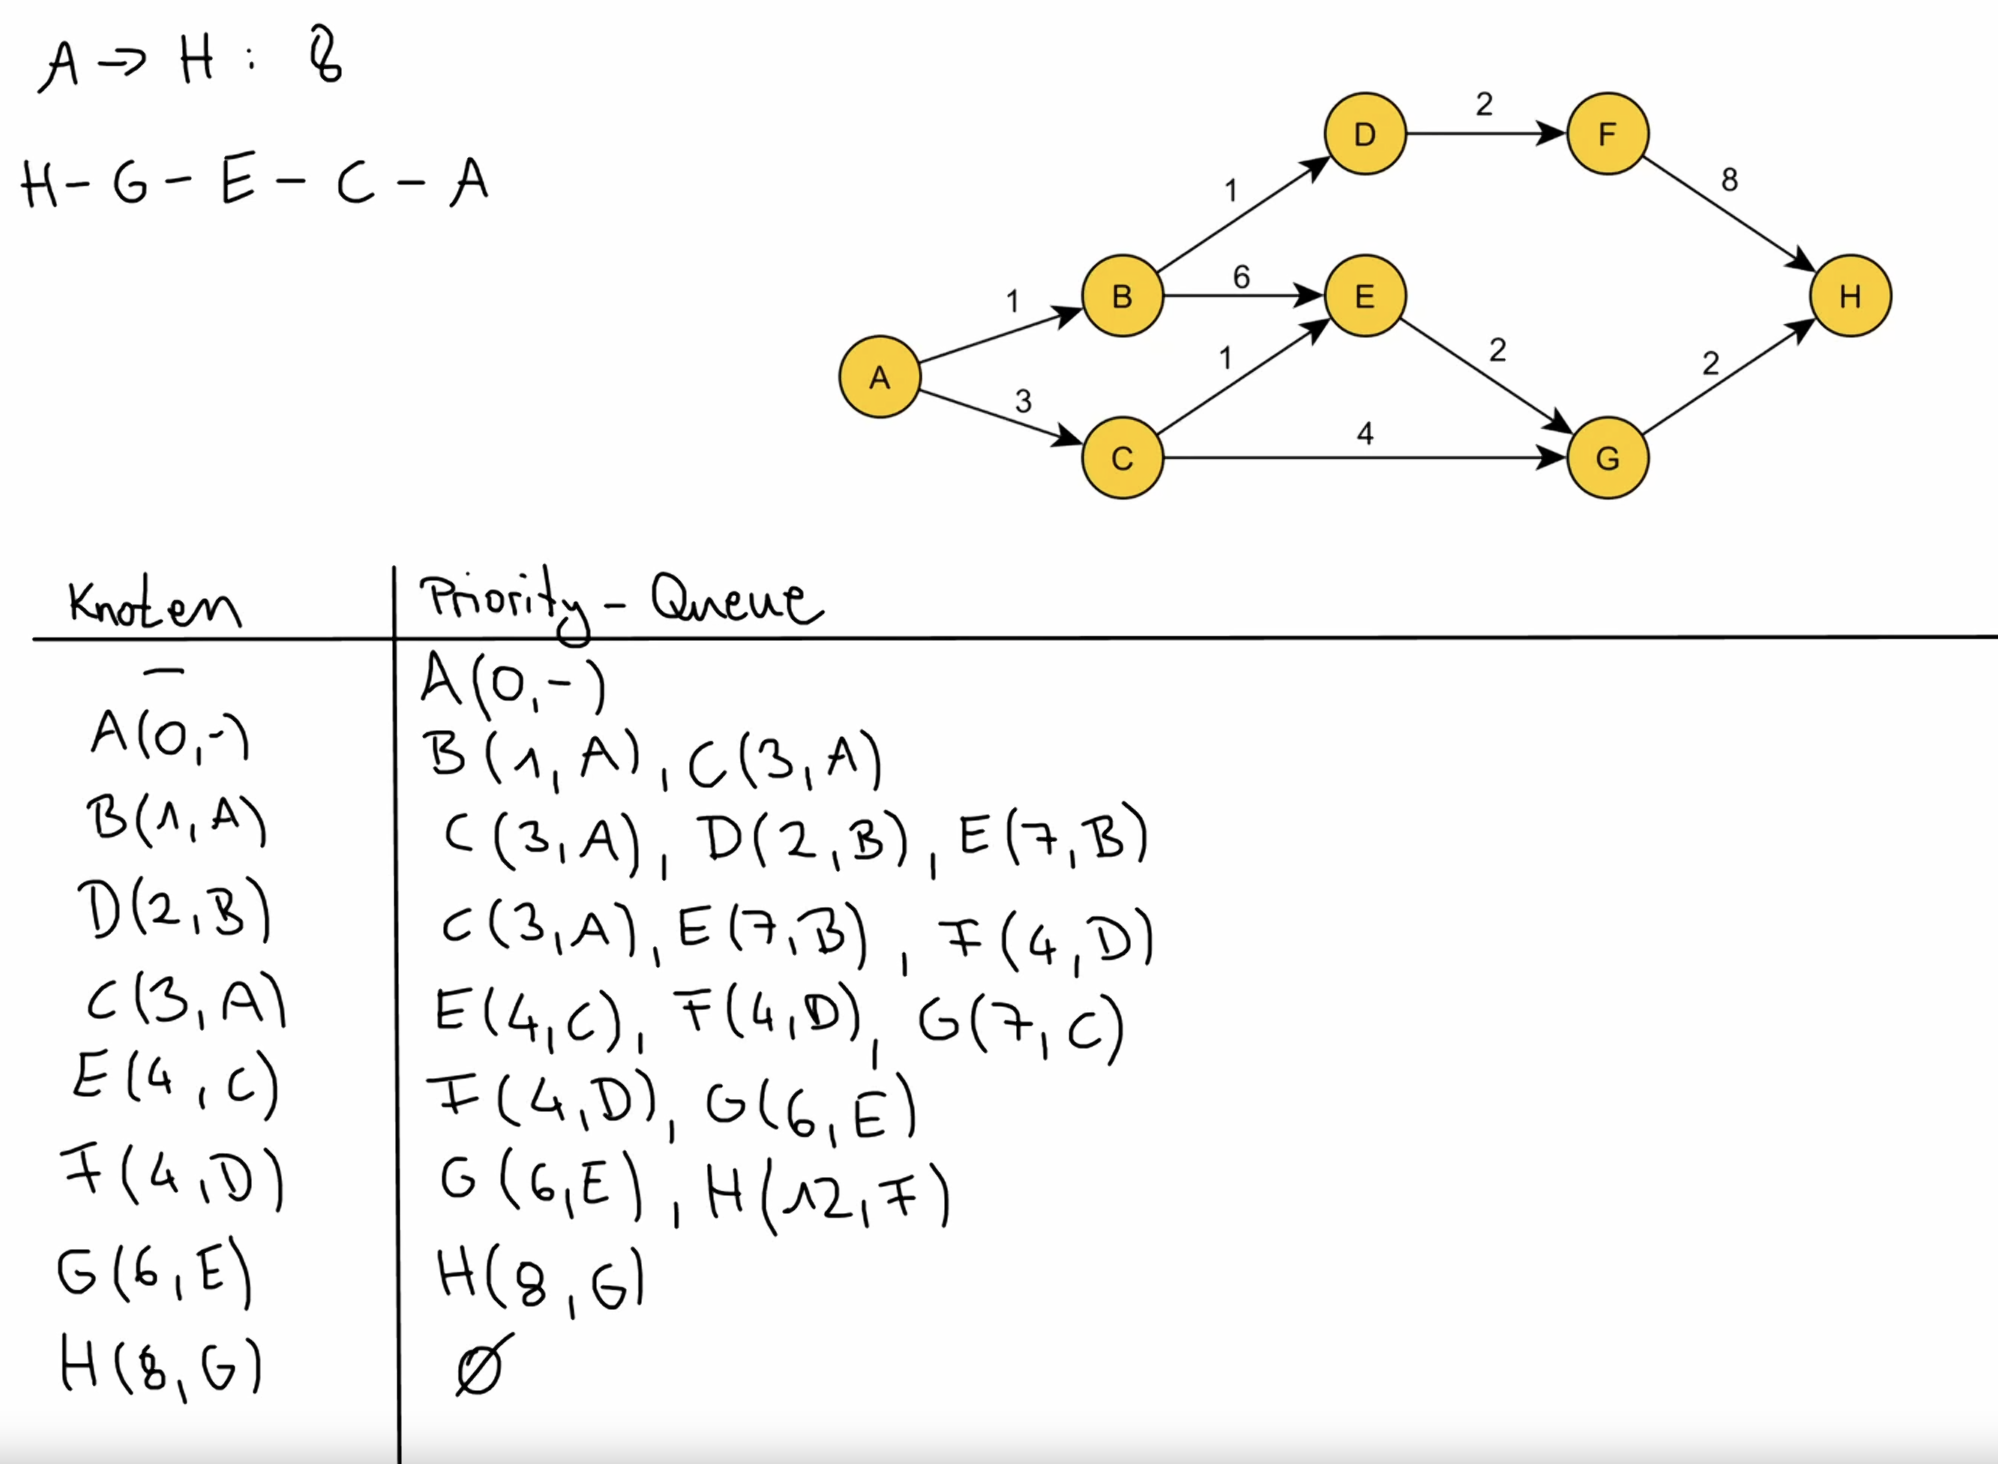 A → H : 8
H - G - E - C - A
2
D
F
1
8
B
6
E
H
1
A
1
2
2
3
C
4
G
Knoten Priority-Queue
- A(0,-)
A(0,-) B(1,A), C(3,A)
B(1,A) C(3,A), D(2,B), E(7,B)
D(2,B) C(3,A), E(7,B), F(4,D)
C(3,A) E(4,C), F(4,D), G(7,C)
E(4,C) F(4,D), G(6,E)
F(4,D) G(6,E), H(12,F)
G(6,E) H(8,G)
H(8,G) Ø